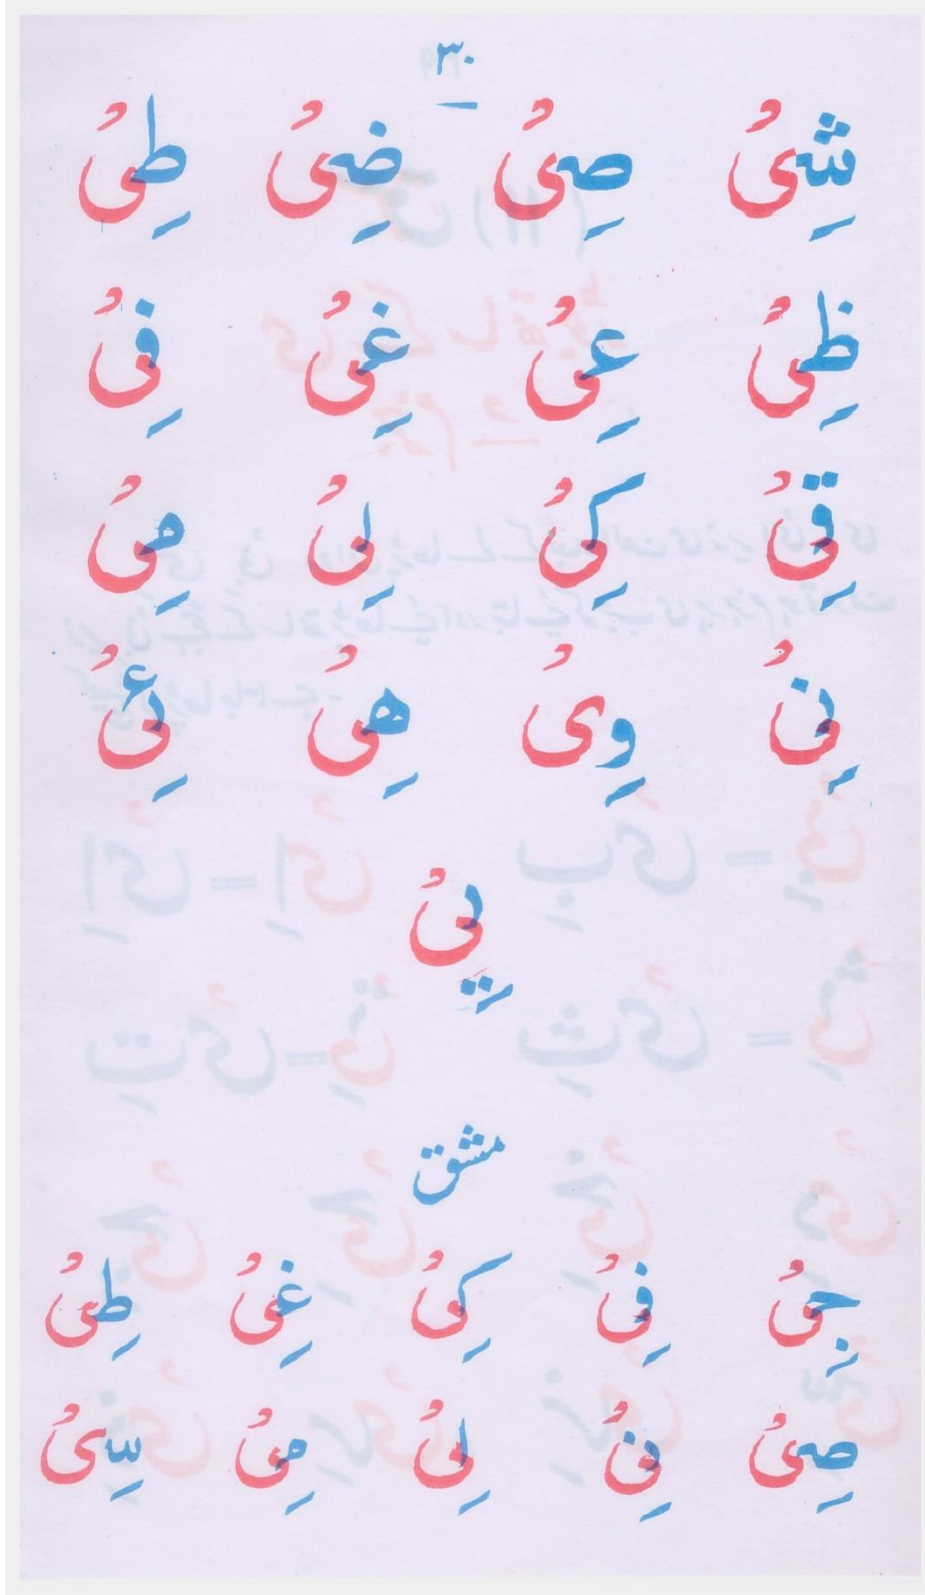 ۳۰
شِیْ صِیْ ضِیْ طِیْ
ظِیْ عِیْ غِیْ فِیْ
قِیْ کِیْ لِیْ مِیْ
نِیْ وِیْ هِیْ ئِیْ
یِیْ
مشق
جِیْ فِیْ کِیْ غِیْ طِیْ
صِیْ نِیْ لِیْ مِیْ سِیْ